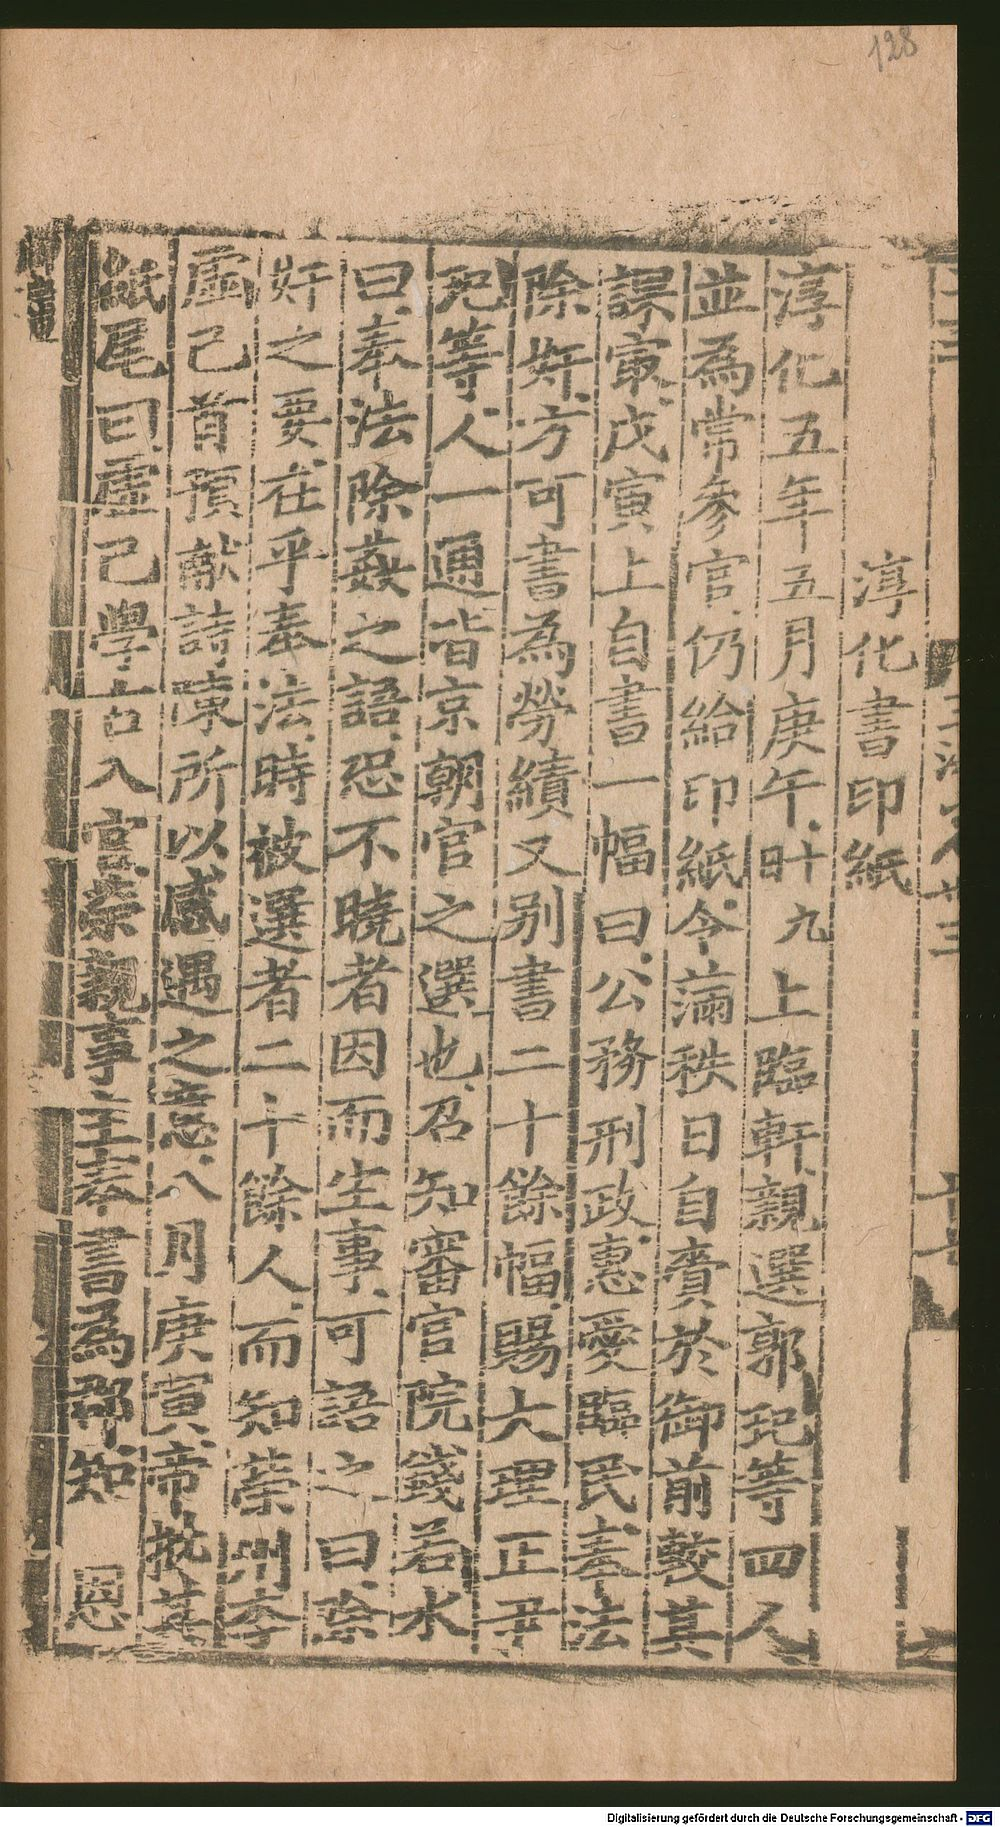 128
淳化書印紙
淳化五年五月庚午廿九上臨軒親選郭玘等四人
並為常參官仍給印紙令滿秩日自賫於御前較其
課最戊寅上自書一幅曰公務刑政惠愛臨民奉法
除奸方可書為勞績又別書二十餘幅賜大理正尹
玘等人一通皆京朝官之選也召知審官院錢若水
曰奉法除姦之語恐不曉者因而生事可語之曰除
奸之要在乎奉法時被選者二十餘人而知榮州李
虛己首預獻詩陳所以感遇之意八月庚寅帝批其
紙尾曰虛己學古入官榮親事主奉書為郡知 恩
Digitalisierung gefördert durch die Deutsche Forschungsgemeinschaft - DFG